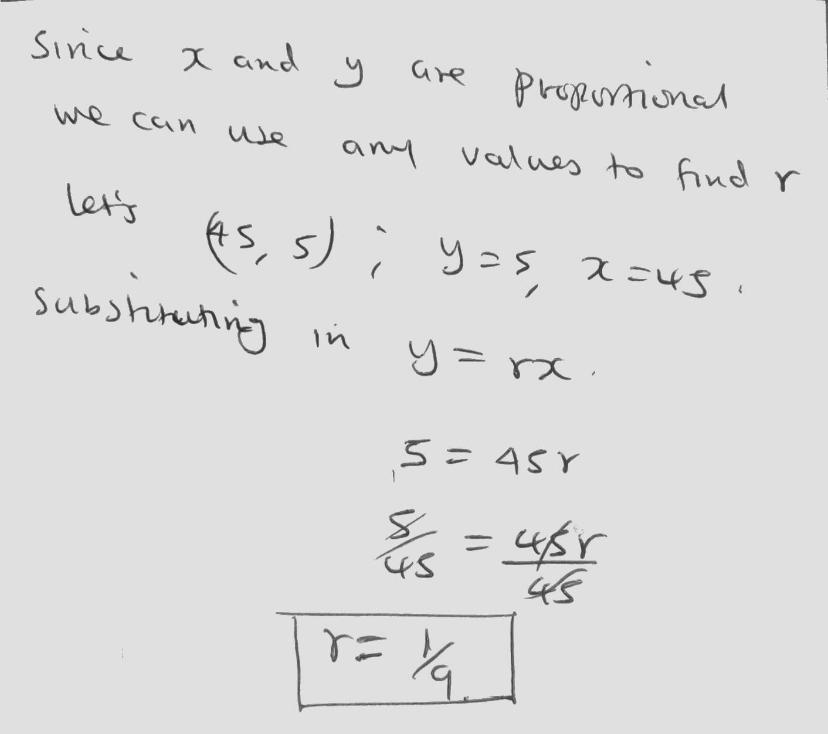 Since x and y are proportional
we can use any values to find r
Let's (45, 5) ; y=5, x=45.
Substituting in y = rx.
5 = 45r
5/45 = 45r/45
r = 1/9